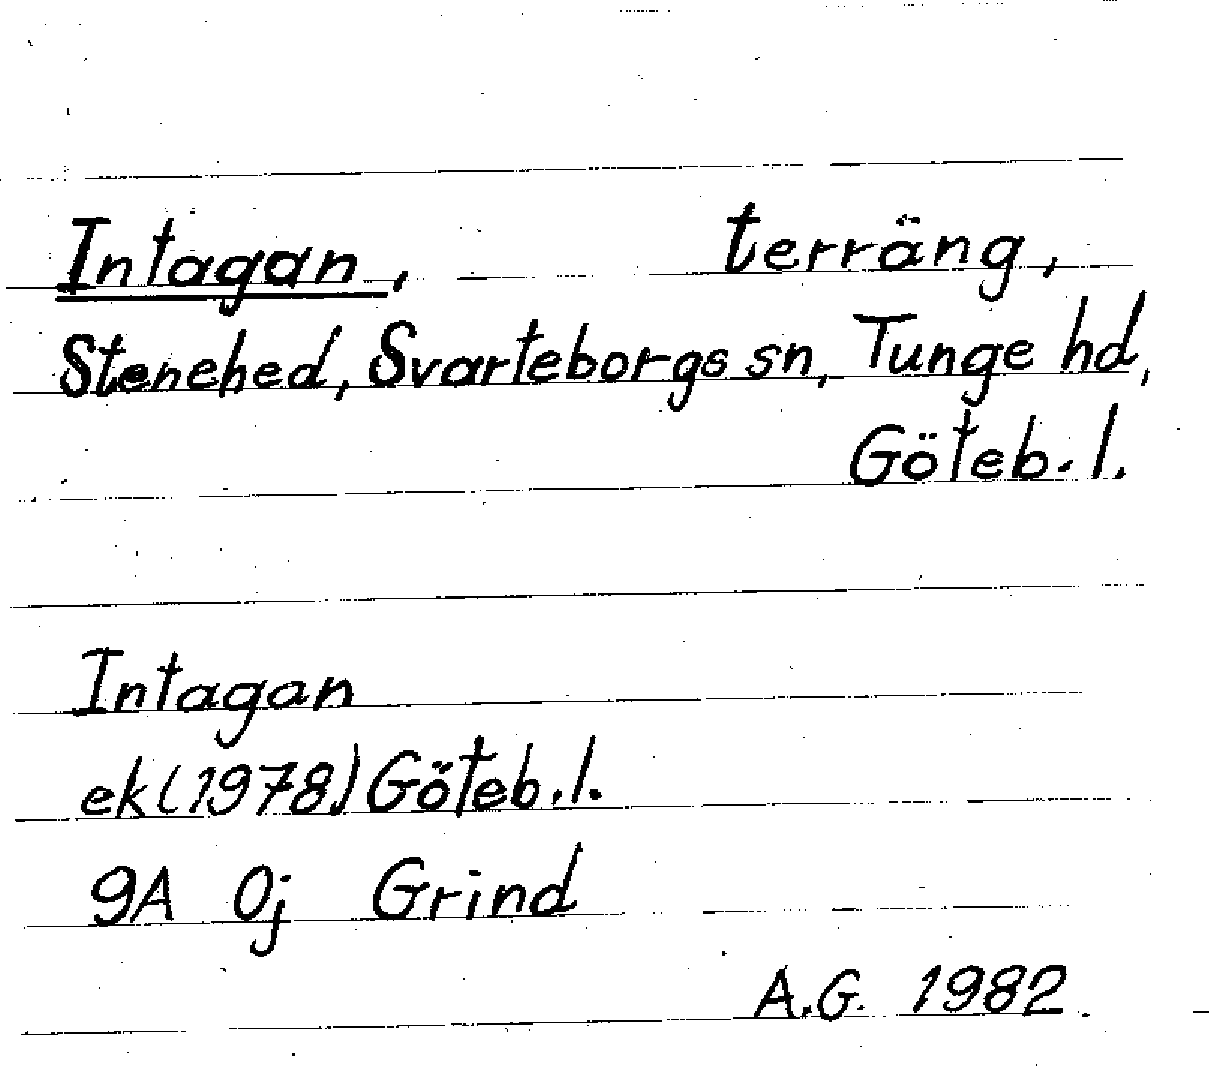 Intagan, terräng,
Stenehed, Svarteborgs sn, Tunge hd,
Göteb. l.
Intagan
ek (1978) Göteb. l.
9A 0j Grind
A.G. 1982.